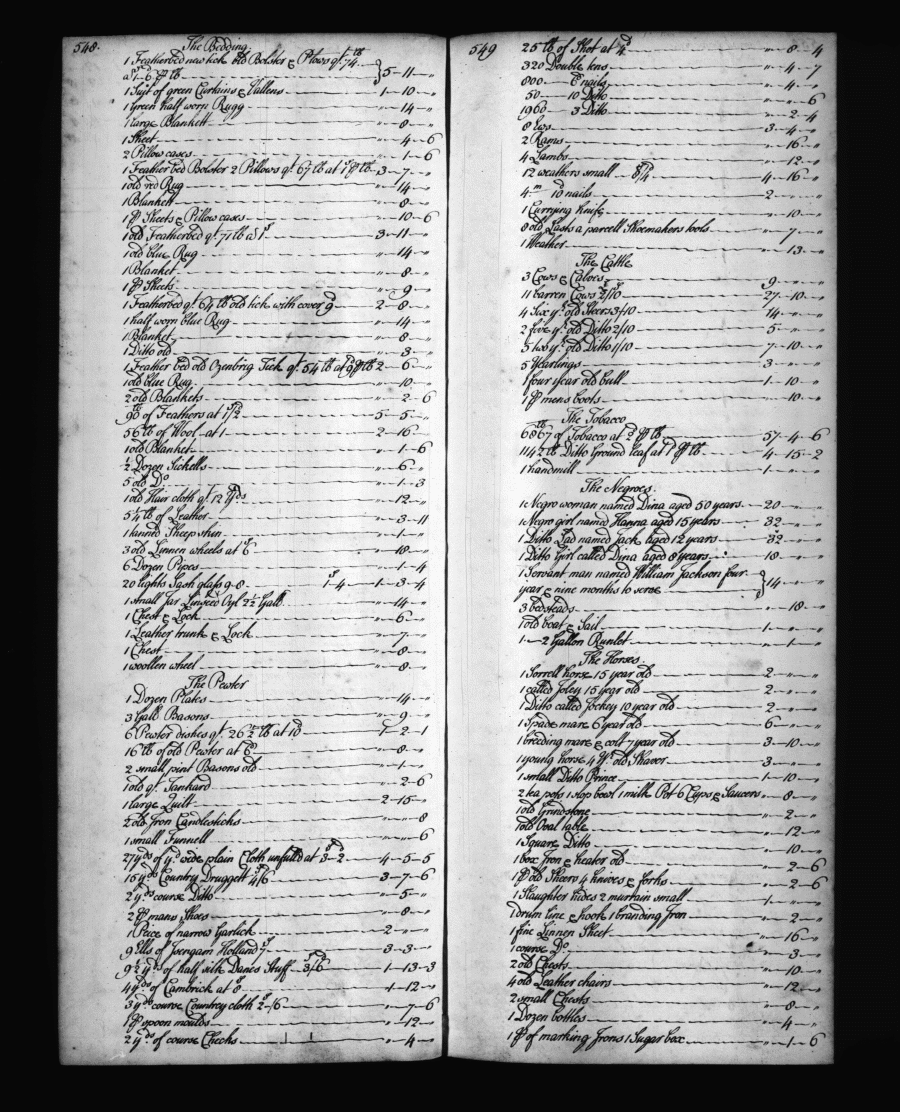 548.
The Bedding
1 Featherbed new tick old Bolster & Plows qt. 74
a 1-6 p lb 5-11-"
1 Sut of green Curtains & Vallens 1-10-"
1 Green half worn Rugg "-14-"
1 large Blankett "-8-"
1 Sheet "-4-6
2 Pillow cases "-1-6
1 Feather bed Bolster 2 Pillows qt. 67 lb at 1s p lb 3-7-"
1 old red Rug "-14-"
1 Blankett "-8-"
1 p Sheets & Pillow cases "-10-6
1 old Featherbed qt. 71 lb a 1s 3-11-"
1 old blue Rug "-14-"
1 Blanket "-8-"
1 p Sheets "-9-"
1 Featherbed qt. 64 lb old tick with cover 9 2-8-"
1 half worn blue Rug "-14-"
1 Blanket "-8-"
1 Ditto old "-3-"
1 Feather bed old Ozenbrig Tick qt. 54 lb at 9 p lb 2-6-"
1 old blue Rug "-10-"
2 old Blankets "-2-6
90 lb of Feathers at 1/2 5-5-"
56 lb of Wool at 1 2-16-"
1 old Blanket "-1-6
½ Dozen Sickells "-6-"
5 old Do "-1-3
1 old Hair cloth qt. 12 yds "-12-"
5¼ lb of Leather "-3-11
1 tanned Sheep skin "-1-"
3 old Linnen wheels at 6 "-18-"
6 Dozen Pipes "-1-4
20 lights Sash glass 9-8 1-4 1-3-4
1 small Jar Linseed Oyl 2½ Gall "-14-"
1 Chest & Lock "-6-"
1 Leather trunk & Lock "-7-"
1 Chest "-8-"
1 woollen wheel "-8-"
The Pewter
1 Dozen Plates "-14-"
3 Gall Basons "-9-"
6 Pewter dishes qt. 26½ lb at 10 1-2-1
16 lb of old Pewter at 6 "-8-"
2 small pint Basons old "-1-"
1 old qt. Tankard "-2-6
1 large Quilt 2-15-"
2 old Iron Candlesticks "-"-8
1 small Funnell "-"-6
27 yds of yd wide plain Cloth unfulld at 3-2 4-5-5
15 yds Country Druggett 4/6 3-7-6
2 yds course Ditto "-5-"
2 p mans Shoes "-8-"
1 Peice of narrow Garlick 2-"-"
9 Ells of Isengam Holland 7 3-3-"
9½ yds of half silk Danes Stuff 3/6 1-13-3
4 yds of Cambrick at 8 1-12-"
3 yds course Countrey cloth 2/6 "-7-6
1 p spoon moulds "-12-"
2 yds of course Checks "-4-"
549
25 lb of Shot at 4d "-8-4
320 Double tens "-4-7
800 8 nails "-4-"
50 10 Ditto "-"-6
1960 3 Ditto "-2-4
8 Ews 3-4-"
2 Rams "-16-"
4 Lambs "-12-"
12 weathers small 8/ 4-16-"
4 m 10 nails 2-"-"
1 Currying knife "-10-"
8 old Lasts a parcell Shoemakers tools "-7-"
1 Weather "-13-"
The Cattle
3 Cows & Calves 9-"-"
11 barren Cows 2/10 27-10-"
4 Six yr. old Steers 3/10 14-"-"
2 five yr. old Ditto 2/10 5-"-"
5 two yr. old Ditto 1/10 7-10-"
5 Yearlings 3-"-"
1 four year old bull 1-10-"
1 p mens boots "-10-"
The Tobacco
6867 lb of Tobacco at 2 p lb 57-4-6
1142 lb Ditto Ground leaf at 1d p lb 4-15-2
1 handmill 1-"-"
The Negroes.
1 Negro woman named Dina aged 50 years 20-"-"
1 Negro girl named Hanna aged 15 years 32-"-"
1 Ditto Lad named Jack aged 12 years 32-"-"
1 Ditto Girl called Dina aged 8 years 18-"-"
1 Servant man named William Jackson four
year & nine months to serve 14-"-"
3 bedsteads "-18-"
1 old boat & Sail 1-"-"
1-2 Gallon Runlet "-1-"
The Horses
1 Sorrell horse 15 year old 2-"-"
1 called Joley 15 year old 2-"-"
1 Ditto called Jockey 10 year old 2-"-"
1 Spade mare 6 year old 6-"-"
1 breeding mare & colt 7 year old 3-10-"
1 young horse 4 yr. old Shaver 3-"-"
1 small Ditto Prince 1-10-"
2 tea pots 1 slop bowl 1 milk Pot 6 Cups & Saucers "-8-"
1 old Grindstone "-2-"
1 old Oval table "-12-"
1 Square Ditto "-10-"
1 box Iron & heater old "-2-6
1 p old Sheers 4 knives & forks "-2-6
1 Slaughter hides 2 murtain small 1-"-"
1 drum line & hook 1 branding Iron "-2-"
1 fine Linnen Sheet "-16-"
1 course Do "-3-"
2 old Chests "-10-"
4 old Leather chairs "-12-"
2 small Chests "-8-"
1 Dozen bottles "-4-"
1 p of marking Irons 1 Sugar box "-1-6